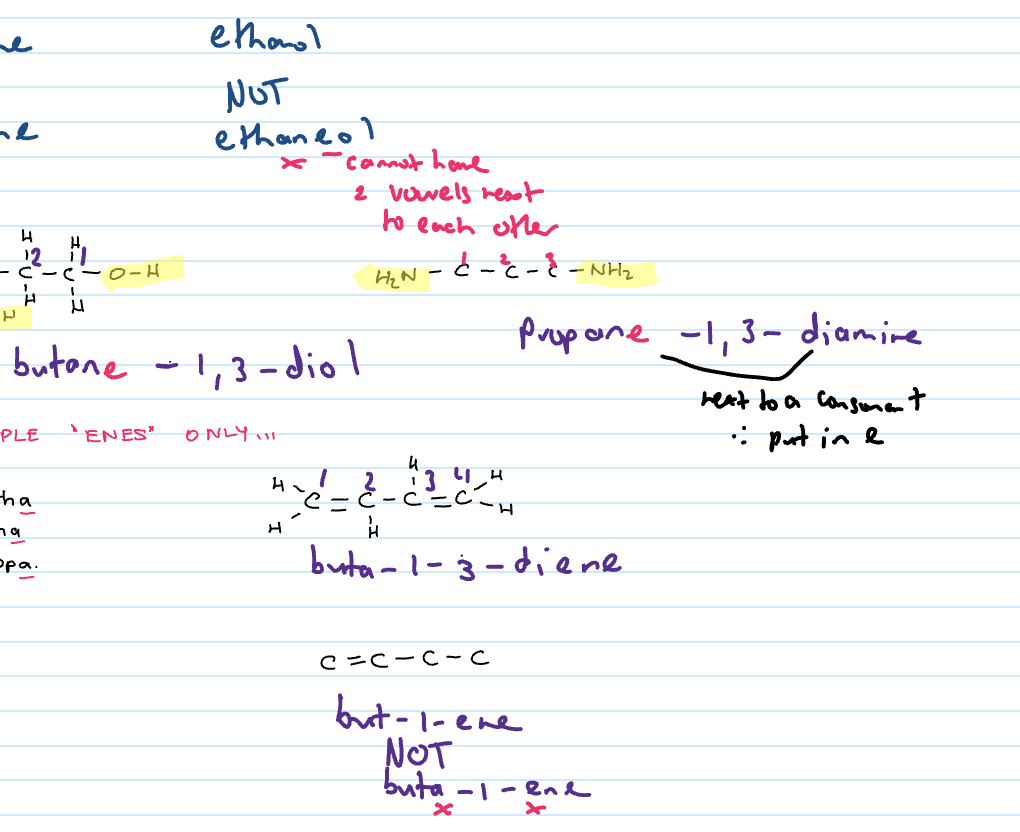 ne ethanol
NOT
ne ethaneol
x - cannot have
2 vowels next
to each other
H H
2 1
- C - C - O - H
H H
H
1 2 3
H₂N - C - C - C - NH₂
propane -1,3- diamine
butane -1,3-diol
next to a consonant
∴ put in e
PLE 'ENES" ONLY...
H 1 2 H 3 4 H
C = C - C = C
H H H
tha
na
opa.
buta-1-3-diene
C=C-C-C
but-1-ene
NOT
buta-1-ene
x x